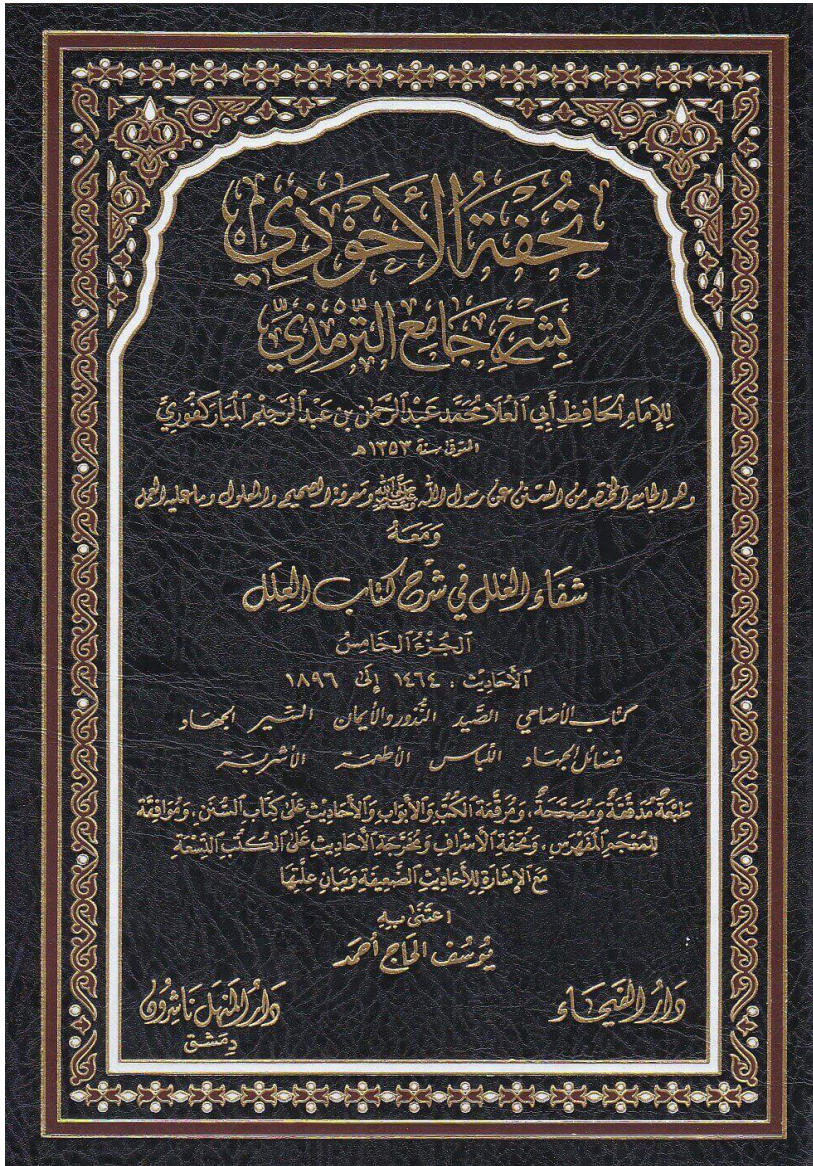 تُحْفَةُ الأَحْوَذِي
بِشَرْحِ جَامِعِ التِّرْمِذِيِّ
لِلإِمَامِ الحَافِظِ أَبِي العُلَا مُحَمَّد عَبْدِ الرَّحْمٰنِ بن عَبْدِ الرَّحِيمِ المُبَارَكْفُورِيِّ
المتوفى سنة ١٣٥٣ هـ
وهو الجامع المختصر من السنن عن رسول الله ﷺ ومعرفة الصحيح والمعلول وما عليه العمل
وَمَعَهُ
شفَاء الغلل في شرح كتاب العِلَل
الجُزْءُ الخَامِسُ
الأَحَادِيث : ١٤٦٤ إِلَى ١٨٩٦
كتاب الأضاحي الصَّيد النُّذور والأيمان السِّير الجهاد
فضائل الجهاد اللِّباس الأطعمة الأشربة
طَبْعَةٌ مُدَقَّقَةٌ وَمُصَحَّحَةٌ ، وَمُرَقَّمَة الكُتُبِ وَالأَبْوَابِ وَالأَحَادِيثِ عَلَى كِتَابِ السُّنَنِ ، وَمُوَافَقَة
لِلْمُعْجَمِ المُفَهْرَسِ ، وَتُحْفَةِ الأَشْرَافِ وَمُخَرَّجَة الأَحَادِيثِ عَلَى الكُتُبِ التِّسْعَةِ
مَعَ الإِشَارَةِ لِلأَحَادِيثِ الضَّعِيفَةِ وَبَيَانِ عِلَّتِهَا
اعْتَنَى بِهِ
يُوسُف الحَاج أَحمَد
دَارُ الفَيْحَاء
دَارُ المَنْهَل نَاشِرُون
دِمَشْق